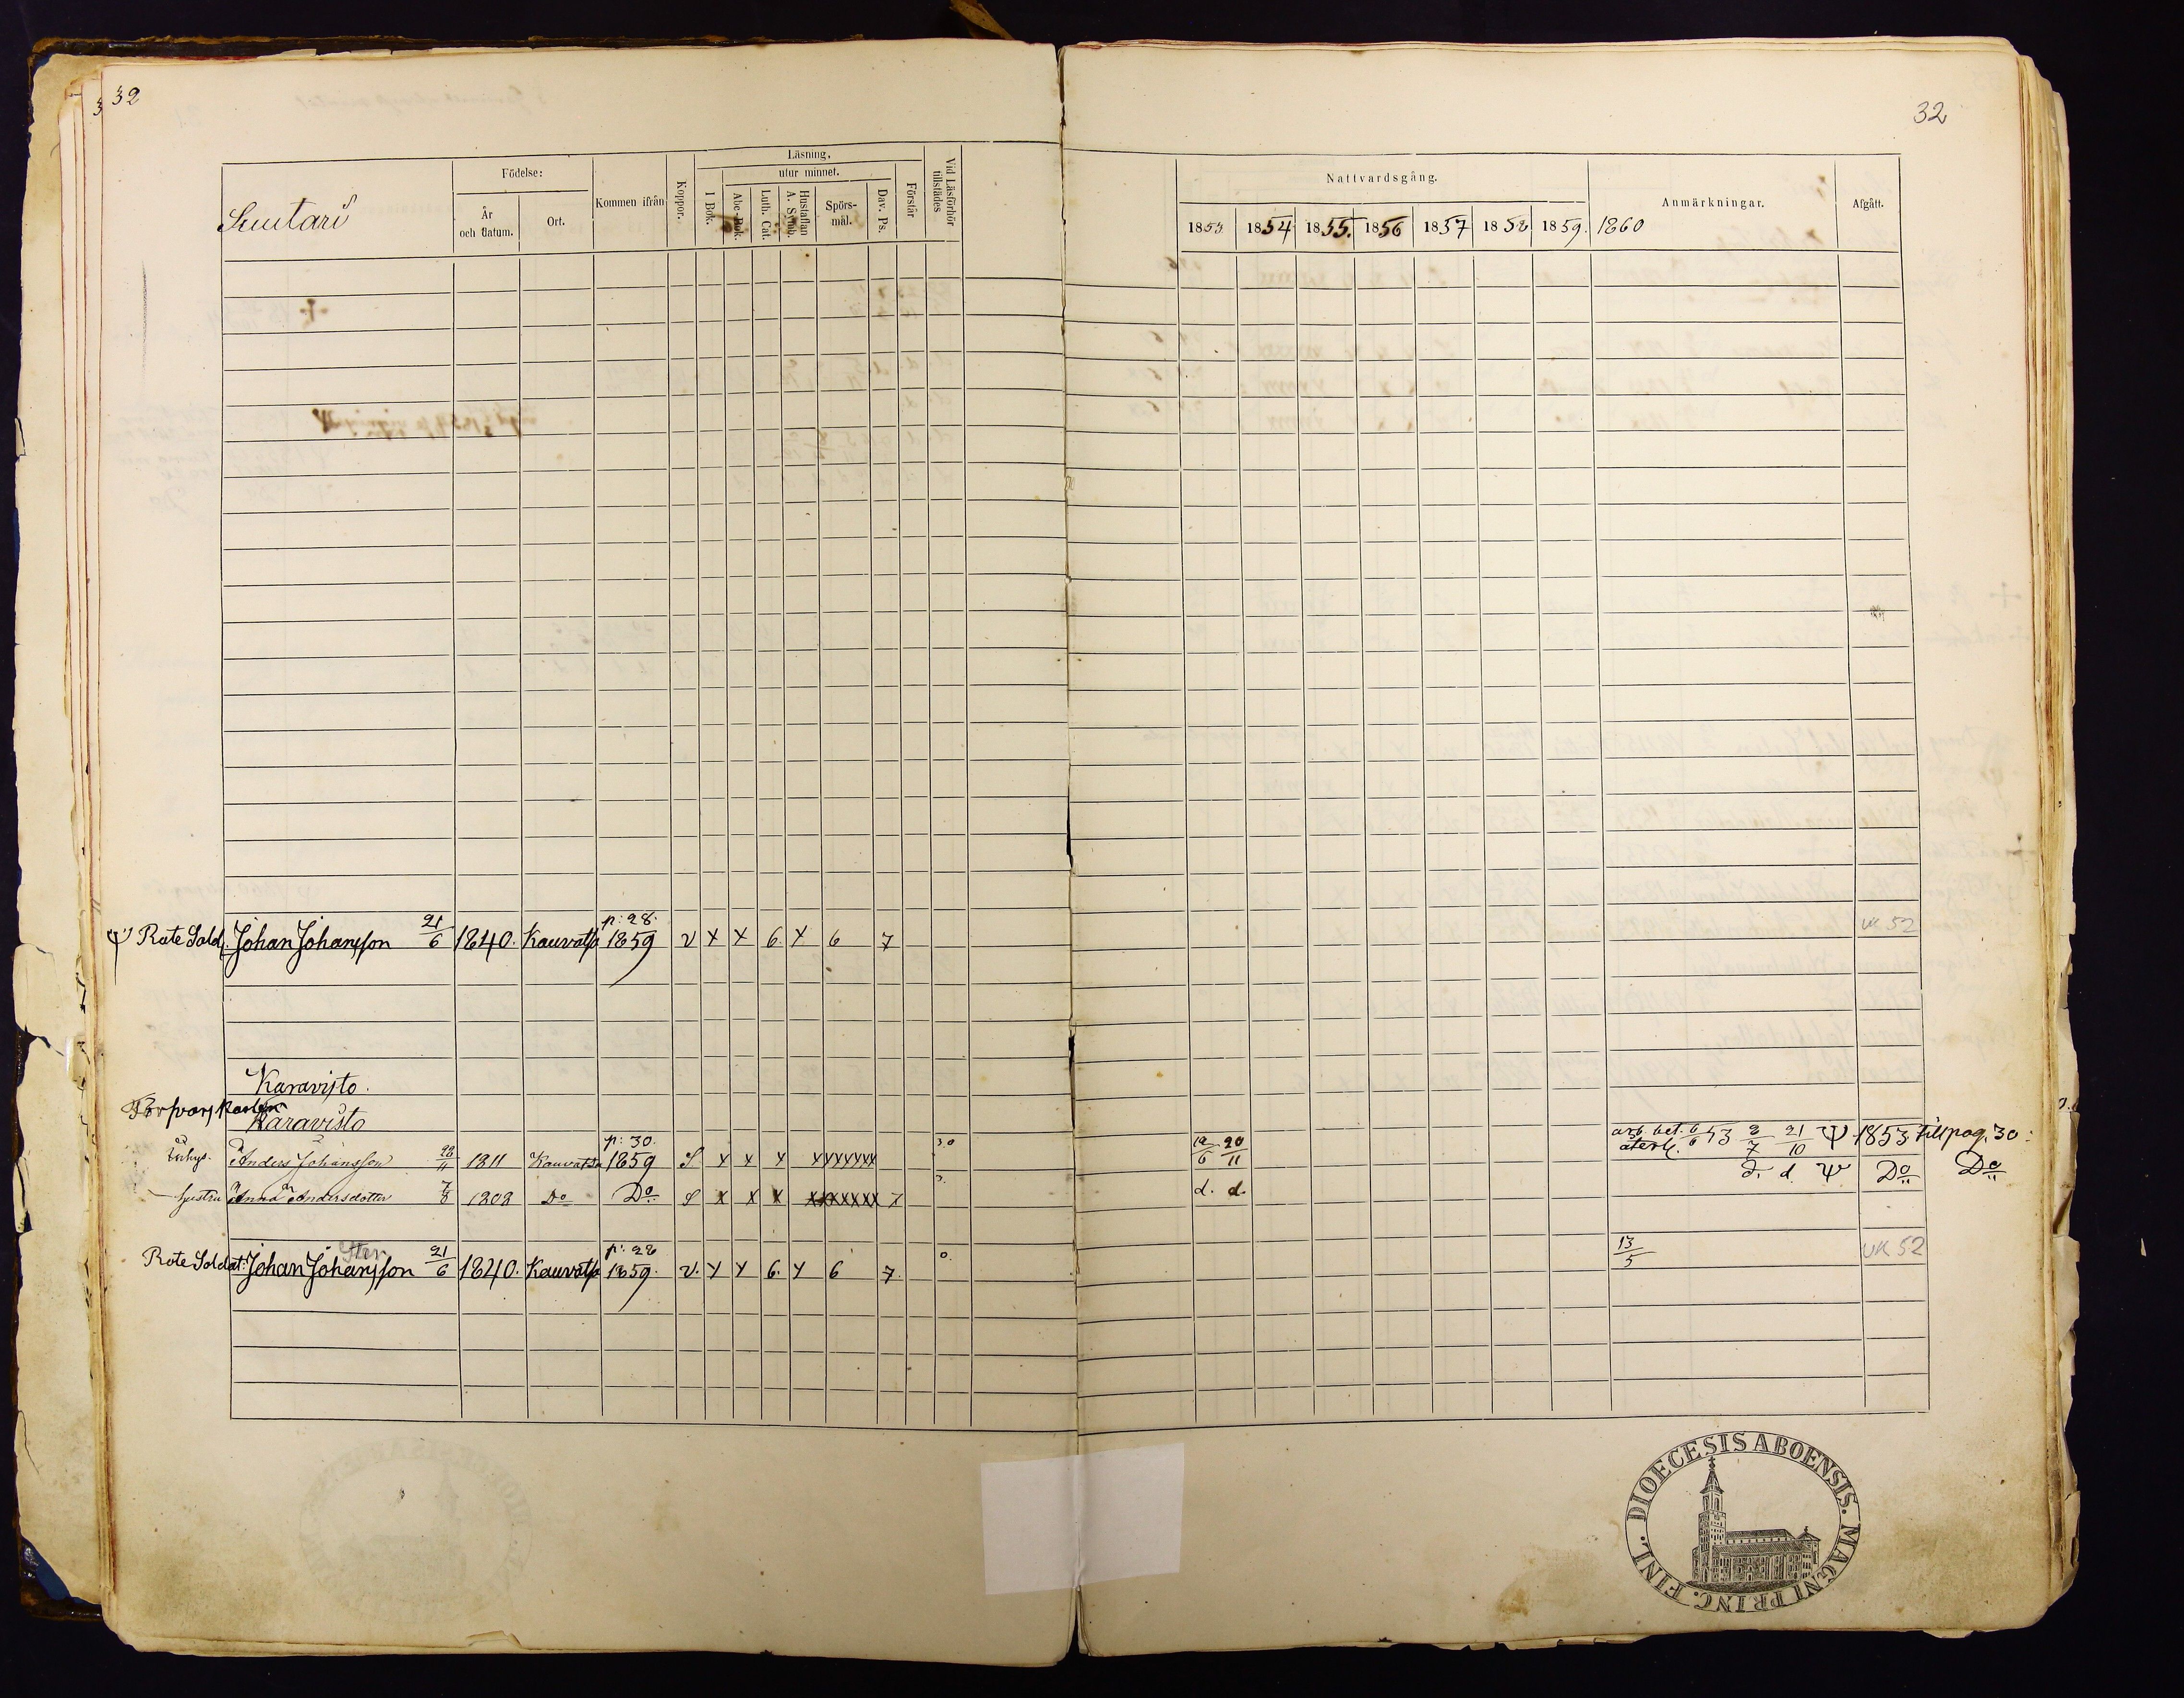 32
32
Suutari
Födelse:
År
och datum.
Ort.
Kommen ifrån
Koppor.
Läsning,
utur minnet.
I Bok.
Abc-Bok.
Luth. Cat.
Hustaflan
A. Symb.
Spörs-
mål.
Dav. Ps.
Förstår
Vid Läsförhör
tillstädes
Nattvardsgång.
1853 1854 1855. 1856 1857 1858 1859. 1860
Anmärkningar.
Afgått.
Rote Sold. Johan Johansson 21/6 1840. Kauvatsa p: 28. 1859 v x x 6. x 6 7
UK 52
Karavisto.
Karavisto
Anders Johansson 1811 Kauvatsa p: 30. 1859 S x x x xxxxxxx 30
12/6 20/11
arb. bet. 6/6 53 2/7 21/10 Ψ 1853 till pag. 30:
hustru Anna Andersdotter 7/8 1808 Do Do S x x x xxxxxxx 7
d. d.
d. d. Ψ Do Do
Rote Soldat: Johan Johansson 21/6 1840. Kauvatsa p: 28 1859. v. x x 6. x 6 7. 0.
13/5
UK 52
DIOECESIS ABOENSIS. MAGNI PRINC. FINL.